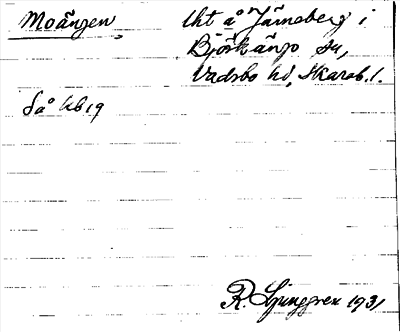 Moängen, Uht å Järneberg i
Björkängs sn,
Vadsbo hd, Skarab. l.
Så Kb 19
R. Ljunggren 1931